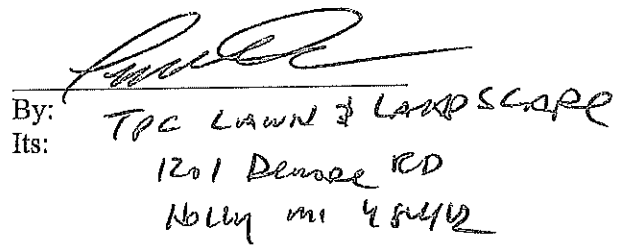 By: TPC LAWN & LANDSCAPE
Its:
1201 RD
Holly mi 48442